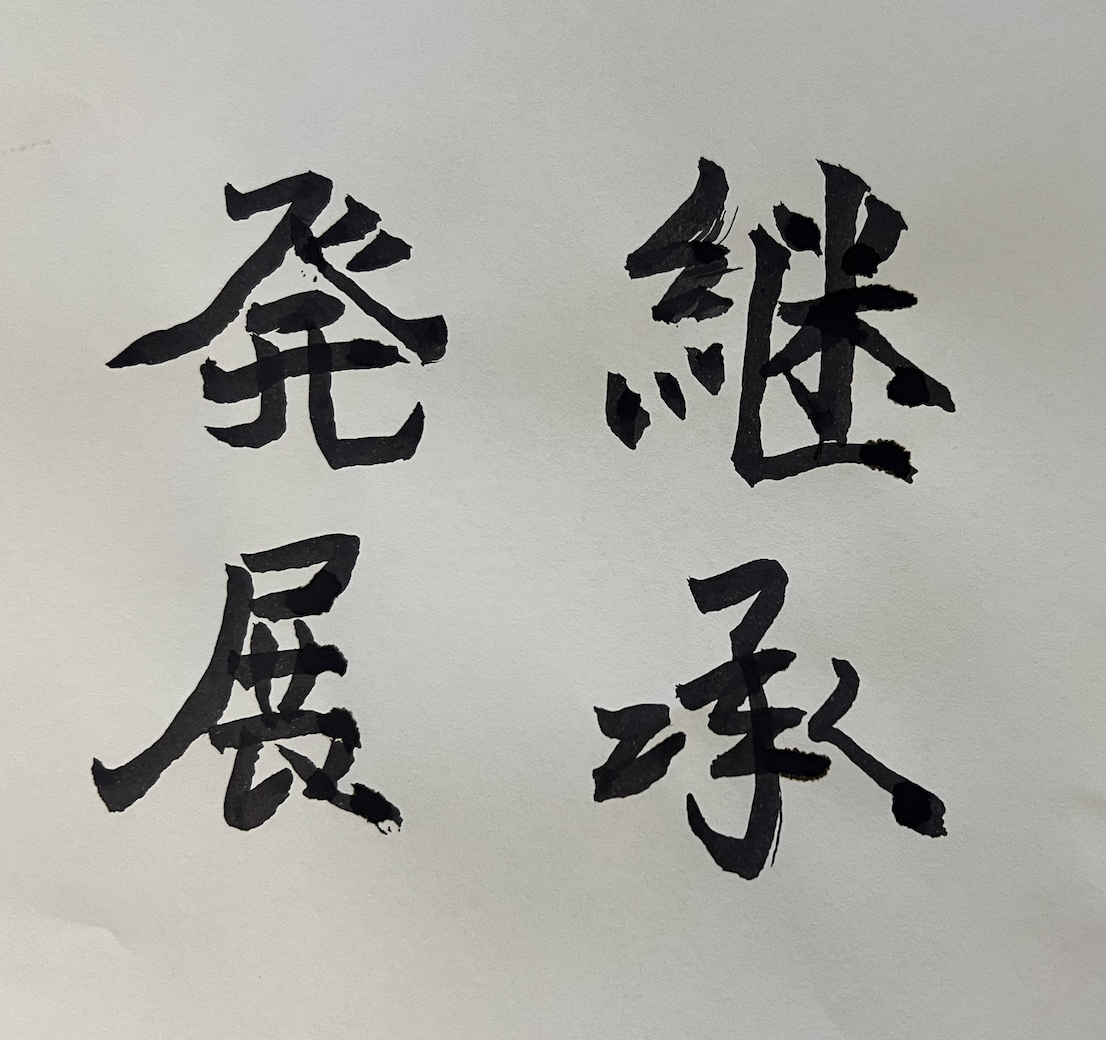 継承
発展